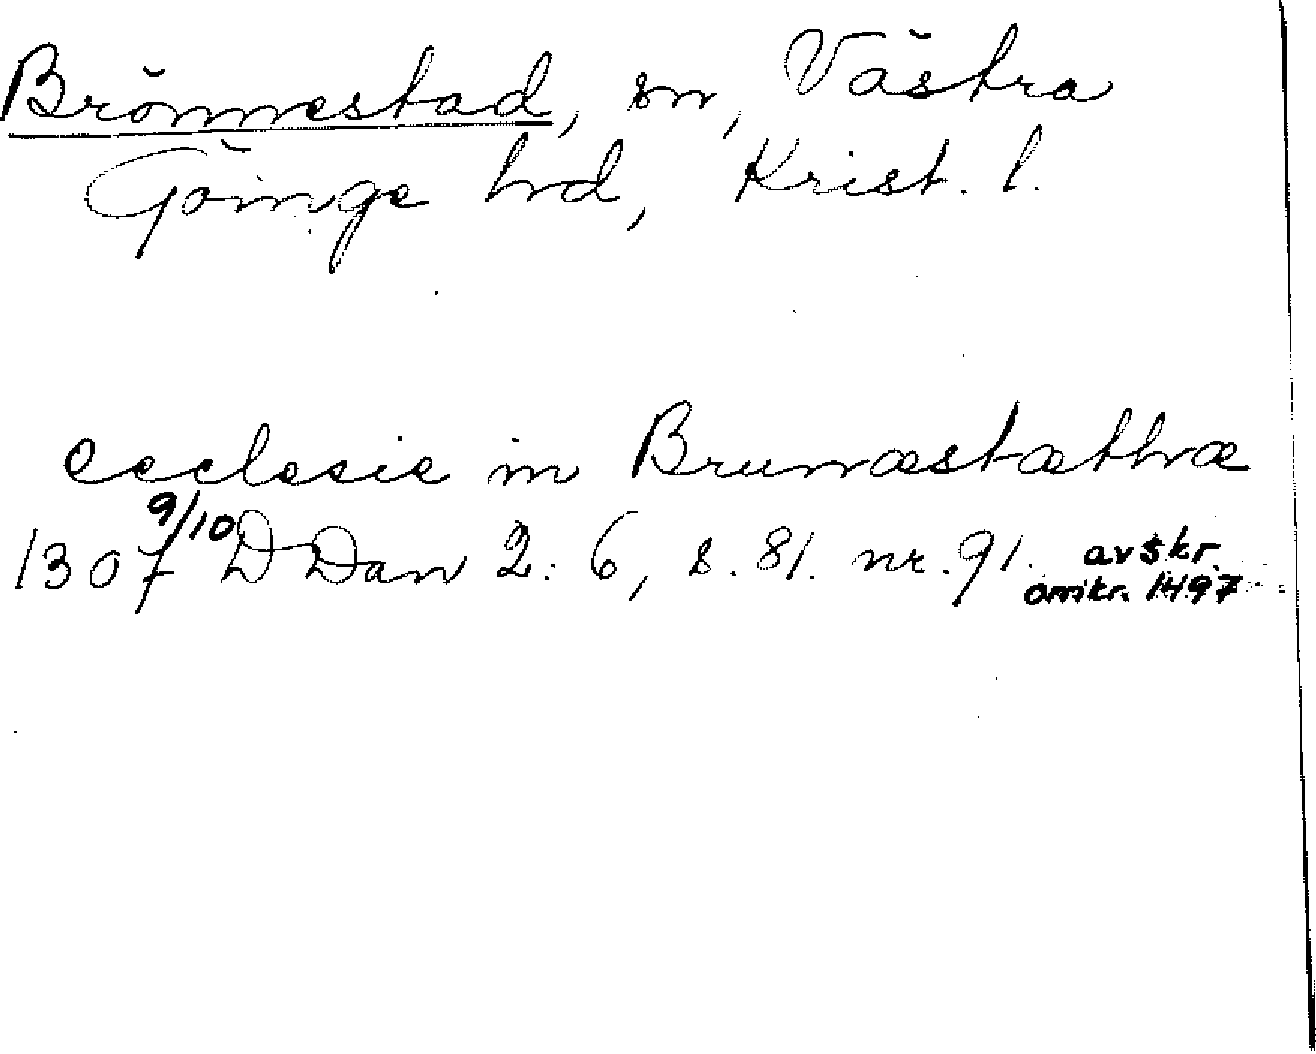 Brönnestad, sn, Västra
Göinge hd, Krist. l.
ecclesie in Brunæstæthæ
1307 9/10 DDan 2: 6, s. 81. nr. 91. avskr.
omkr. 1497